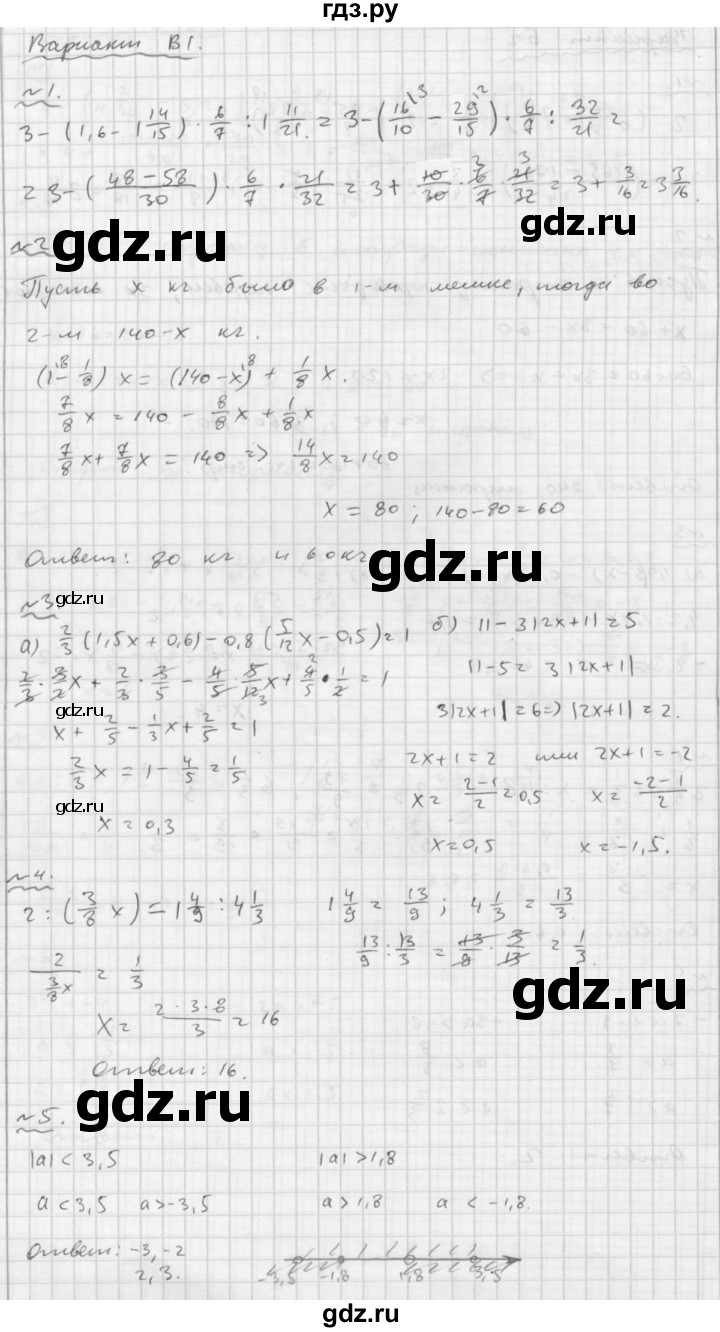 гдз.ру
Вариант В1.
№1.
3 - (1,6 - 1 14/15) · 6/7 : 1 11/21 = 3 - (16/10 - 29/15) · 6/7 : 32/21 =
= 3 - ((48-58)/30) · 6/7 · 21/32 = 3 + 10/30 · 6/7 · 21/32 = 3 + 3/16 = 3 3/16.
gdz.ru
gdz.ru
№2
Пусть x кг было в 1-м мешке, тогда во
2-м 140-x кг.
(1 - 1/8) x = (140-x) + 1/8 x.
7/8 x = 140 - 8/8 x + 1/8 x
7/8 x + 7/8 x = 140 => 14/8 x = 140
gdz.ru
gdz.ru
x = 80; 140-80=60
Ответ: 80 кг и 60 кг
gdz.ru
№3
а) 2/3 (1,5x + 0,6) - 0,8 (5/12 x - 0,5) = 1
2/3 · 3/2 x + 2/3 · 3/5 - 4/5 · 5/12 x + 4/5 · 1/2 = 1
gdz.ru
x + 2/5 - 1/3 x + 2/5 = 1
2/3 x = 1 - 4/5 = 1/5
gdz.ru
x = 0,3
б) 11 - 3|2x+1| = 5
11-5 = 3|2x+1|
3|2x+1| = 6 => |2x+1| = 2.
gdz.ru
2x+1 = 2 или 2x+1 = -2
x = (2-1)/2 = 0,5 x = (-2-1)/2
x = 0,5 x = -1,5.
№4.
2 : (3/8 x) = 1 4/9 : 4 1/3 1 4/9 = 13/9; 4 1/3 = 13/3.
13/9 : 13/3 = 13/9 · 3/13 = 1/3.
2/(3/8 x) = 1/3
gdz.ru
x = (2·3·8)/3 = 16
Ответ: 16.
gdz.ru
№5.
|a| < 3,5 |a| > 1,8
a < 3,5 a > -3,5 a > 1,8 a < -1,8.
Ответ: -3, -2
2, 3.
-3,5 -1,8 1,8 3,5
gdz.ru